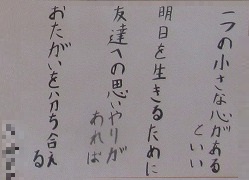 一つの小さな心がある
といい
明日を生きるために
友達への思いやりが
あれば
おたがいを分ち合え
る